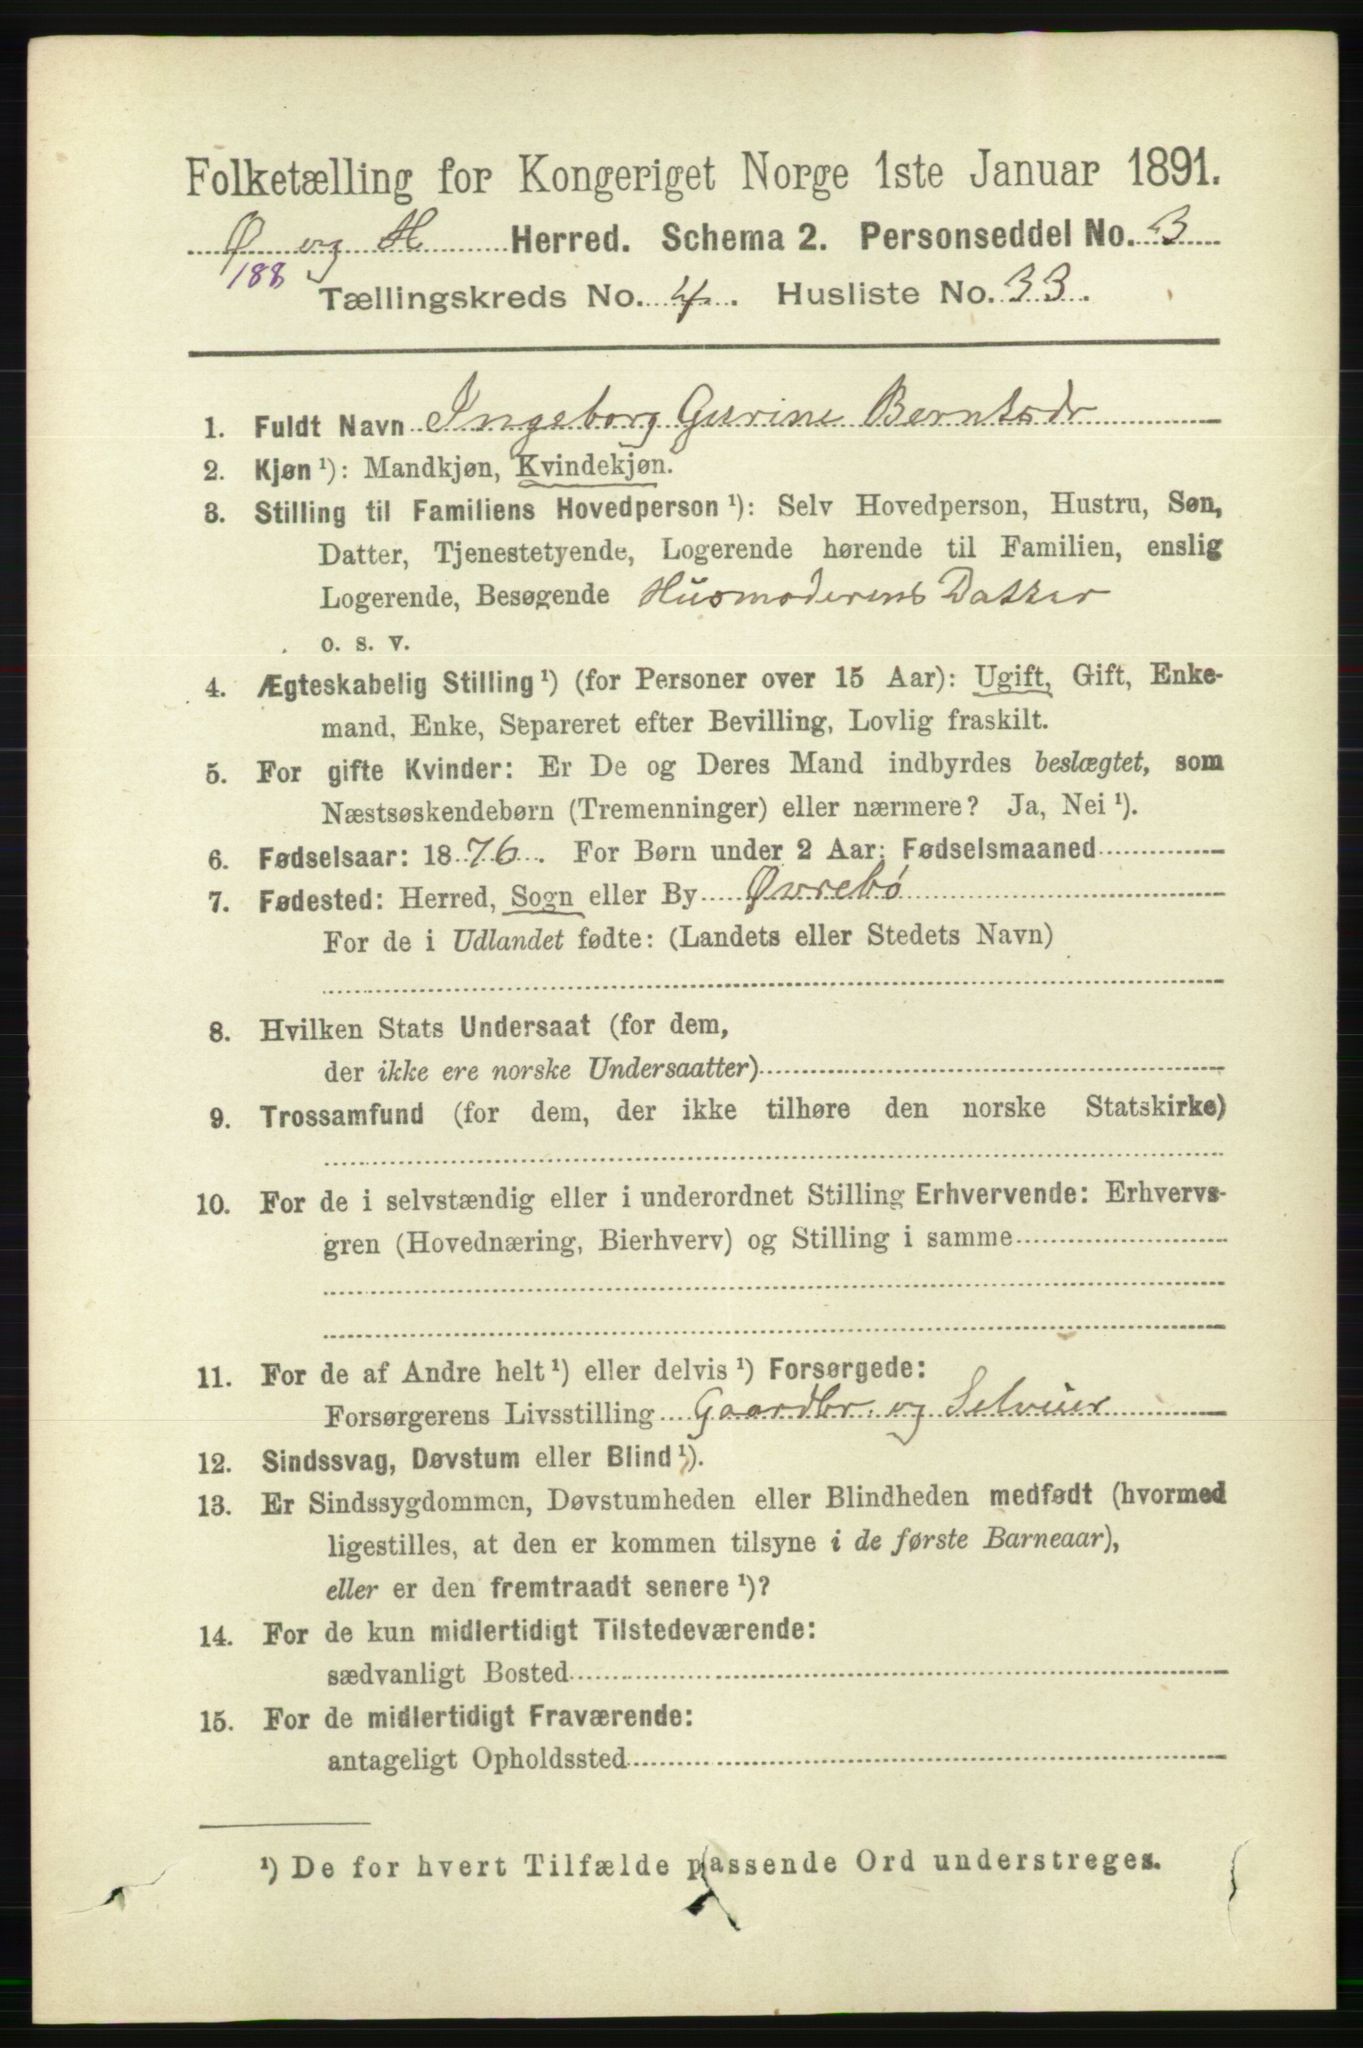 Folketælling for Kongeriget Norge 1ste Januar 1891.
Ø og H Herred. Schema 2. Personseddel No. 3
188
Tællingskreds No. 4. Husliste No. 33.
1. Fuldt Navn Ingeborg Gurine Berntsdr
2. Kjøn ¹): Mandkjøn, Kvindekjøn.
3. Stilling til Familiens Hovedperson ¹): Selv Hovedperson, Hustru, Søn,
Datter, Tjenestetyende, Logerende hørende til Familien, enslig
Logerende, Besøgende Husmoderens Datter
o. s. v.
4. Ægteskabelig Stilling ¹) (for Personer over 15 Aar): Ugift, Gift, Enke-
mand, Enke, Separeret efter Bevilling, Lovlig fraskilt.
5. For gifte Kvinder: Er De og Deres Mand indbyrdes beslægtet, som
Næstsøskendebørn (Tremenninger) eller nærmere? Ja, Nei ¹).
6. Fødselsaar: 1876. For Børn under 2 Aar: Fødselsmaaned
7. Fødested: Herred, Sogn eller By Øvrebø
For de i Udlandet fødte: (Landets eller Stedets Navn)
8. Hvilken Stats Undersaat (for dem,
der ikke ere norske Undersaatter)
9. Trossamfund (for dem, der ikke tilhøre den norske Statskirke)
10. For de i selvstændig eller i underordnet Stilling Erhvervende: Erhvervs-
gren (Hovednæring, Bierhverv) og Stilling i samme
11. For de af Andre helt ¹) eller delvis ¹) Forsørgede:
Forsørgerens Livsstilling Gaardbr. og Selveier
12. Sindssvag, Døvstum eller Blind ¹).
13. Er Sindssygdommen, Døvstumheden eller Blindheden medfødt (hvormed
ligestilles, at den er kommen tilsyne i de første Barneaar),
eller er den fremtraadt senere ¹)?
14. For de kun midlertidigt Tilstedeværende:
sædvanligt Bosted
15. For de midlertidigt Fraværende:
antageligt Opholdssted
¹) De for hvert Tilfælde passende Ord understreges.